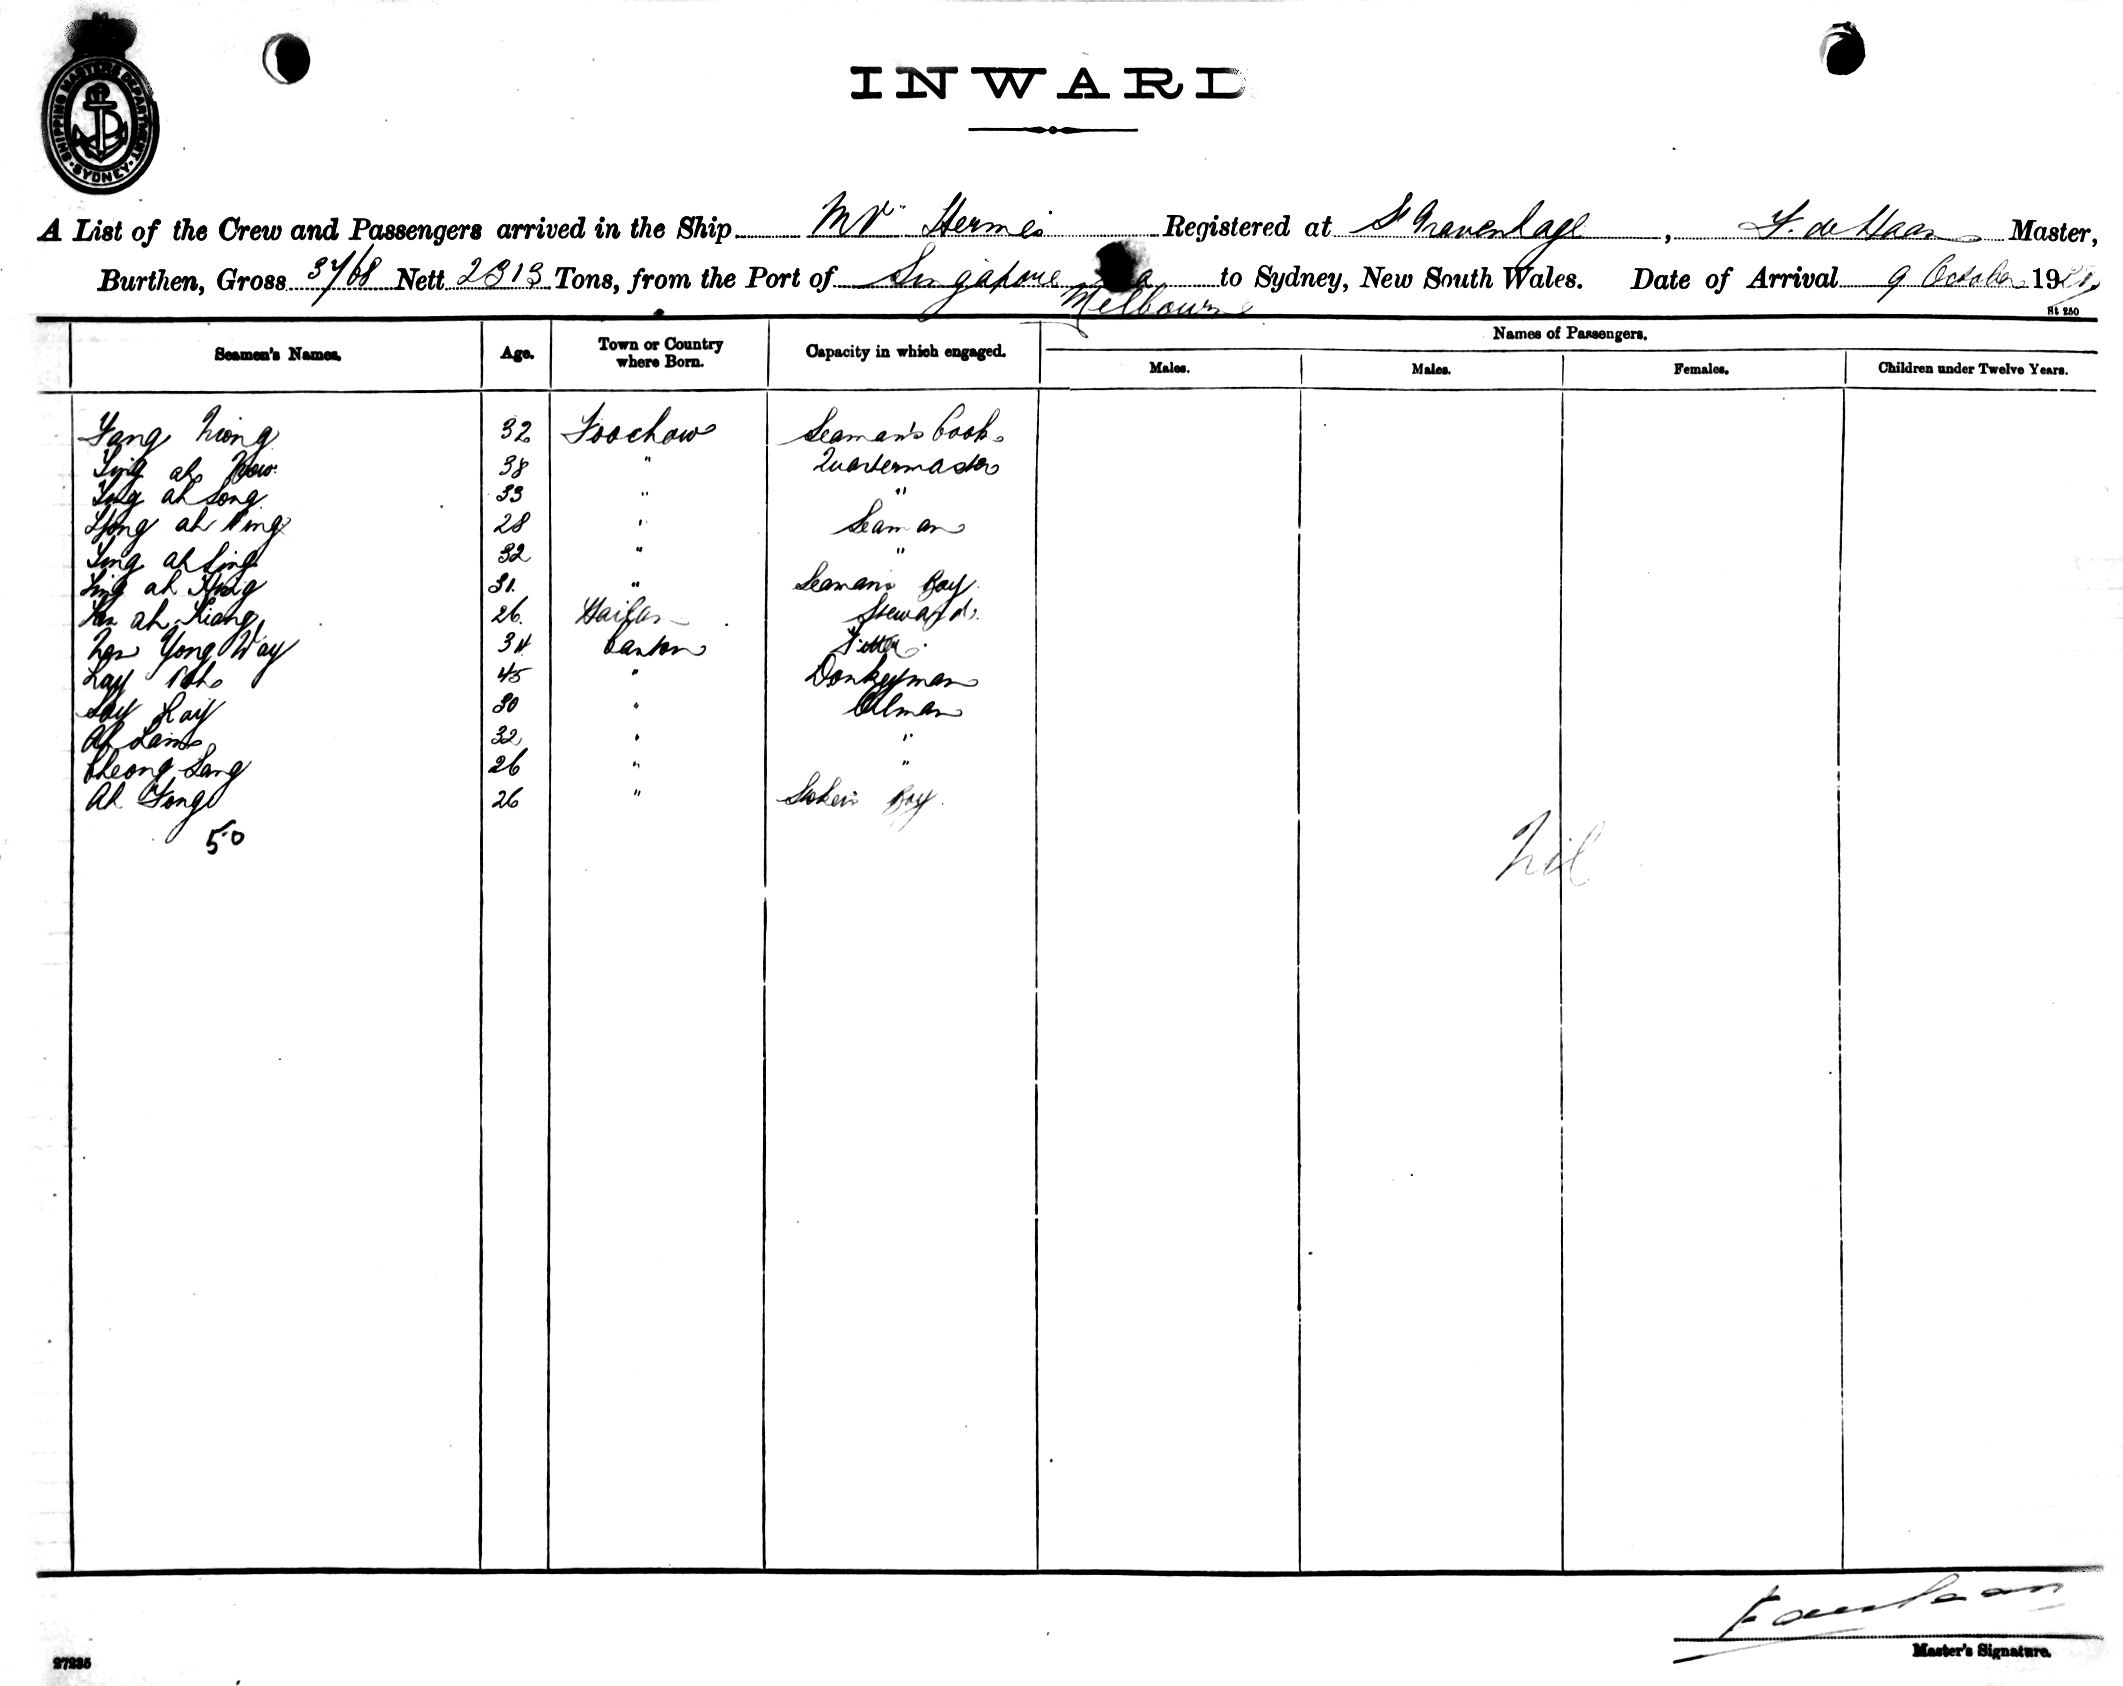 SHIPPING MASTERS DEPARTMENT SYDNEY
INWARD
A List of the Crew and Passengers arrived in the Ship MV Hermes Registered at S'Gravenhage, F. de Haan Master,
Burthen, Gross 3768 Nett 2313 Tons, from the Port of Singapore to Sydney, New South Wales. Date of Arrival 9 October 19
Melbourne
St 250
Seamen's Names. Age. Town or Country where Born. Capacity in which engaged. Names of Passengers.
Males. Males. Females. Children under Twelve Years.
Fang 32 Foochow Seaman's Cook
Ting ah 38 " Quartermaster
Ting ah Song 33 " "
ah 28 " Seaman
Ting ah Sing 32 " "
Ling ah 31. " Seamans Boy
ah Kiang 26. Hailam Steward
Yong Way 34 Canton Fitter
45 " Donkeyman
30 " Oilman
Ah 32 " "
Cheong Sang 26 " "
Ah Fong 26 " Boy
50
Nil
Master's Signature.
27235